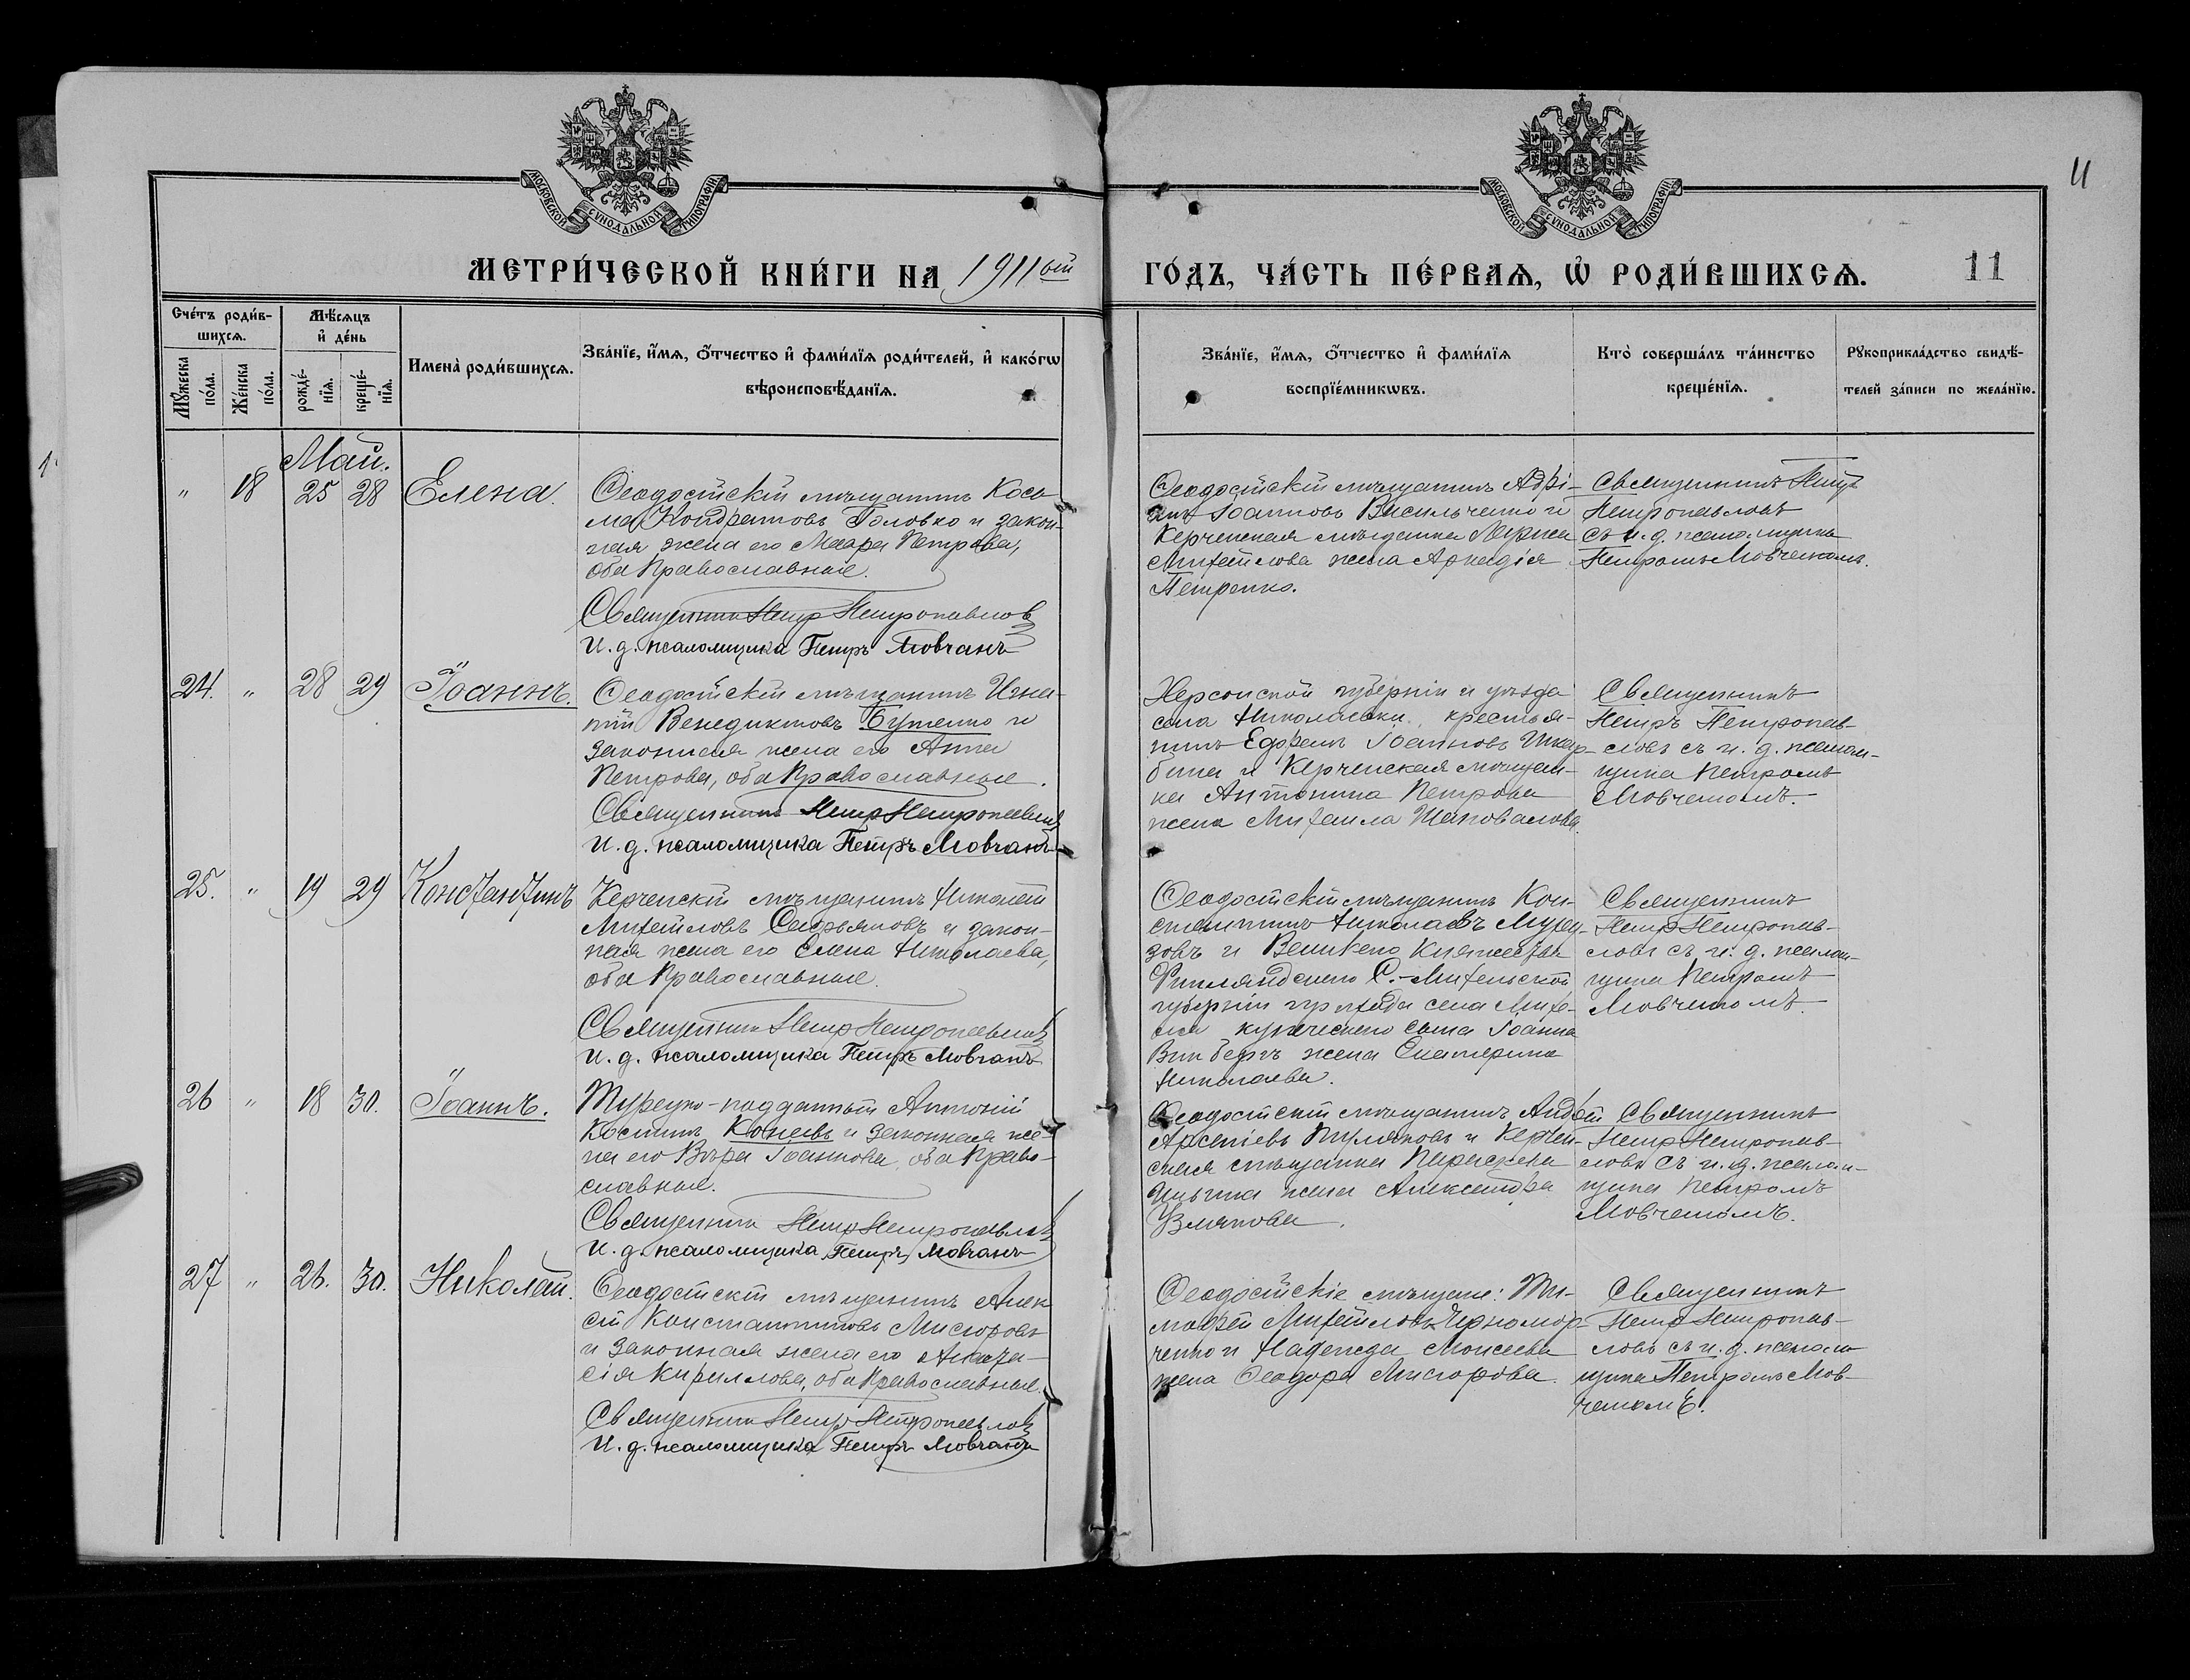 МОСКОВСКОЙ СѴНОДАЛЬНОЙ ТИПОГРАФІИ
МОСКОВСКОЙ СѴНОДАЛЬНОЙ ТИПОГРАФІИ
11
МЕТРИ́ЧЕСКОЙ КНИ́ГИ НА 1911ый
ГО́ДЪ, ЧА́СТЬ ПЕ́РВАѦ, Ѡ РОДИ́ВШИХСѦ.
11
Сче́тъ роди́в-
шихсѧ.
Мѣ́сѧцъ
и҆ де́нь
Мꙋ́жеска по́ла.
Же́нска по́ла.
рожде́-
нїѧ.
креще́-
нїѧ.
Имена̀ роди́вшихсѧ.
Зва́нїе, и҆́мѧ, ѻ҆́тчество и҆ фами́лїѧ роди́телей, и҆ како́гѡ
вѣроисповѣ́данїѧ.
Зва́нїе, и҆́мѧ, ѻ҆́тчество и҆ фами́лїѧ
воспрїе́мникѡвъ.
Кто̀ соверша́лъ та́инство
креще́нїѧ.
Рꙋкоприкла́дство свидѣ́-
телей за́писи по жела́нїю.
Май.
" 18 25 28 Елена.
Ѳеодосійскій мѣщанинъ Кось-
ма Кондратовъ Головко и закон-
ная жена его Мавра Петрова,
оба Православные.
Священникъ Петръ Петропавловъ
И. д. псаломщика Петръ Мовчанъ
Ѳеодосійскій мѣщанинъ Адрі-
анъ Іоанновъ Васильченко и
Керченская мѣщанка Лариса
Михайлова жена Аркадія
Петренко.
Священникъ Петръ
Петропавловъ
съ и. д. псаломщика
Петромъ Мовчаномъ.
24. " 28 29 Іоаннъ.
Ѳеодосійскій мѣщанинъ Игна-
тій Венедиктовъ Бутенко и
законная жена его Анна
Петрова, оба Православные.
Священникъ Петръ Петропавловъ
И. д. псаломщика Петръ Мовчанъ
Херсонской губерніи и уѣзда
села Николаевки, крестья-
нинъ Ефремъ Іоанновъ Шкар-
бина и Керченская мѣщан-
ка Антонина Петрова
жена Михаила Шаповалова.
Священникъ
Петръ Петропав-
ловъ съ и. д. псалом-
щика Петромъ
Мовчаномъ.
25. " 19 29 Константинъ
Керченскій мѣщанинъ Николай
Михайловъ Сафьяновъ и закон-
ная жена его Елена Николаева,
оба Православные.
Священникъ Петръ Петропавловъ
И. д. псаломщика Петръ Мовчанъ
Ѳеодосійскій мѣщанинъ Кон-
стантинъ Николаевъ
и Великаго Княжества
Финляндскаго С.-Михельской
губерніи
купеческаго сына Іоанна
Винбергъ жена Екатерина
Николаева.
Священникъ
Петръ Петропав-
ловъ съ и. д. псалом-
щика Петромъ
Мовчаномъ.
26 " 18 30. Іоаннъ.
Турецко-подданный Антоній
Костинъ Конеевъ и законная же-
на его Вѣра Іоаннова, оба Право-
славные.
Священникъ Петръ Петропавловъ
И. д. псаломщика Петръ Мовчанъ
Ѳеодосійскій мѣщанинъ
Арсеніевъ и Керчен-
ская мѣщанка Параскева
Ильина жена Александра
Узлякова.
Священникъ
Петръ Петропав-
ловъ съ и. д. псалом-
щика Петромъ
Мовчаномъ.
27 " 26. 30. Николай.
Ѳеодосійскій мѣщанинъ Алек-
сій Константиновъ Мисюровъ
и законная жена его Анаста-
сія Кириллова, оба Православные.
Священникъ Петръ Петропавловъ
И. д. псаломщика Петръ Мовчанъ
Ѳеодосійскіе мѣщане: Ти-
моѳей Михайловъ Черномор-
ченко и Надежда Моисеева
жена Ѳеодора Мисюрова.
Священникъ
Петръ Петропав-
ловъ съ и. д. псалом-
щика Петромъ Мов-
чаномъ.